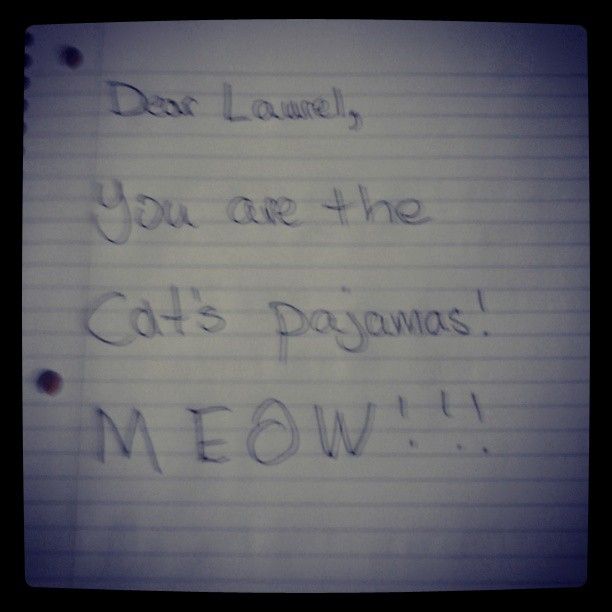 Dear Laurel,
You are the
Cat's pajamas!
MEOW!!!